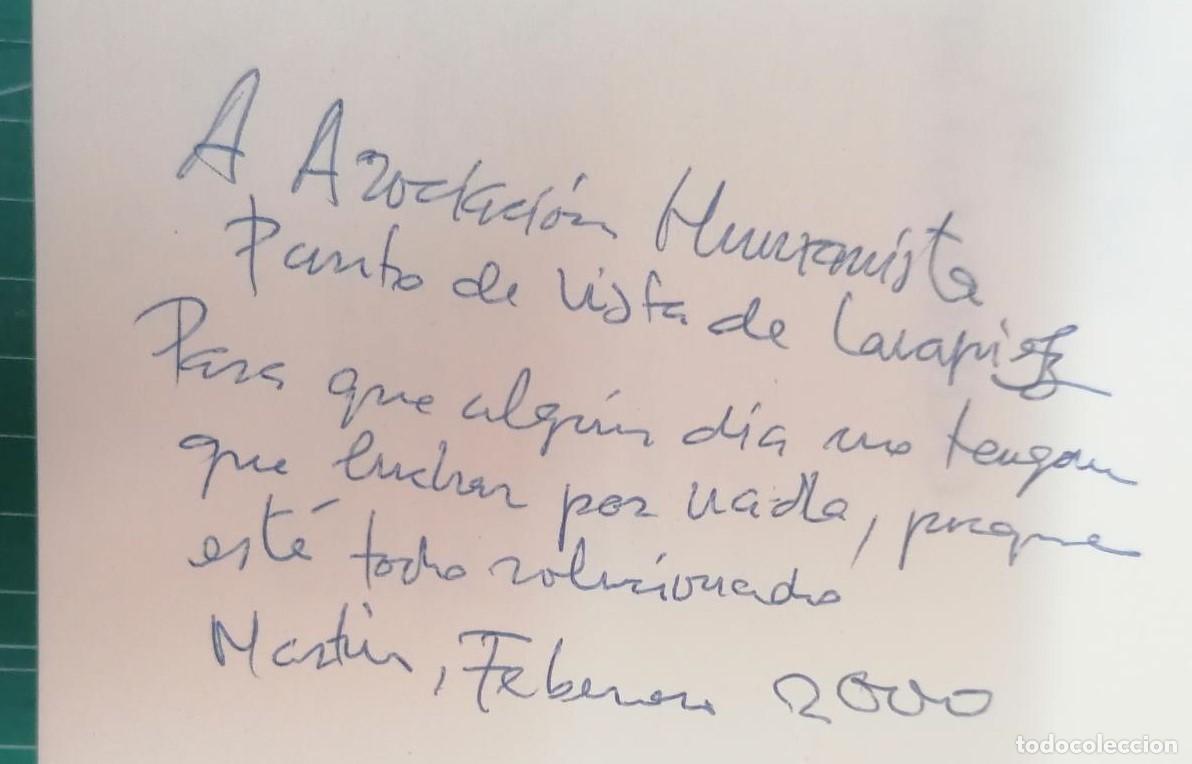 A Asociación Humanista
Punto de vista de Lavapiés
Para que algún día no tengan
que luchar por nada, porque
esté todo solucionado
Martin, Febrero 2000
todocoleccion